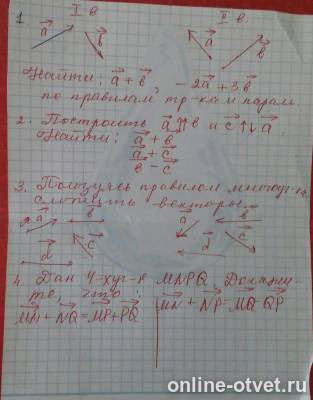 I в. II в.
1 a в a в
Найти: a + в, - 2a + 3в
по правилам тр-ка и парал.
2. Построить a ↑↑ в и c ↑↓ a
Найти: a + в
a + c
в - c
3. Пользуясь правилом многоуг-ка
сложить векторы
a в a в
d c d c
4. Дан 4-хуг-к MNPQ. Докажи-
те, что:
MN + NQ = MP + PQ MN + NP = MQ QP
online-otvet.ru